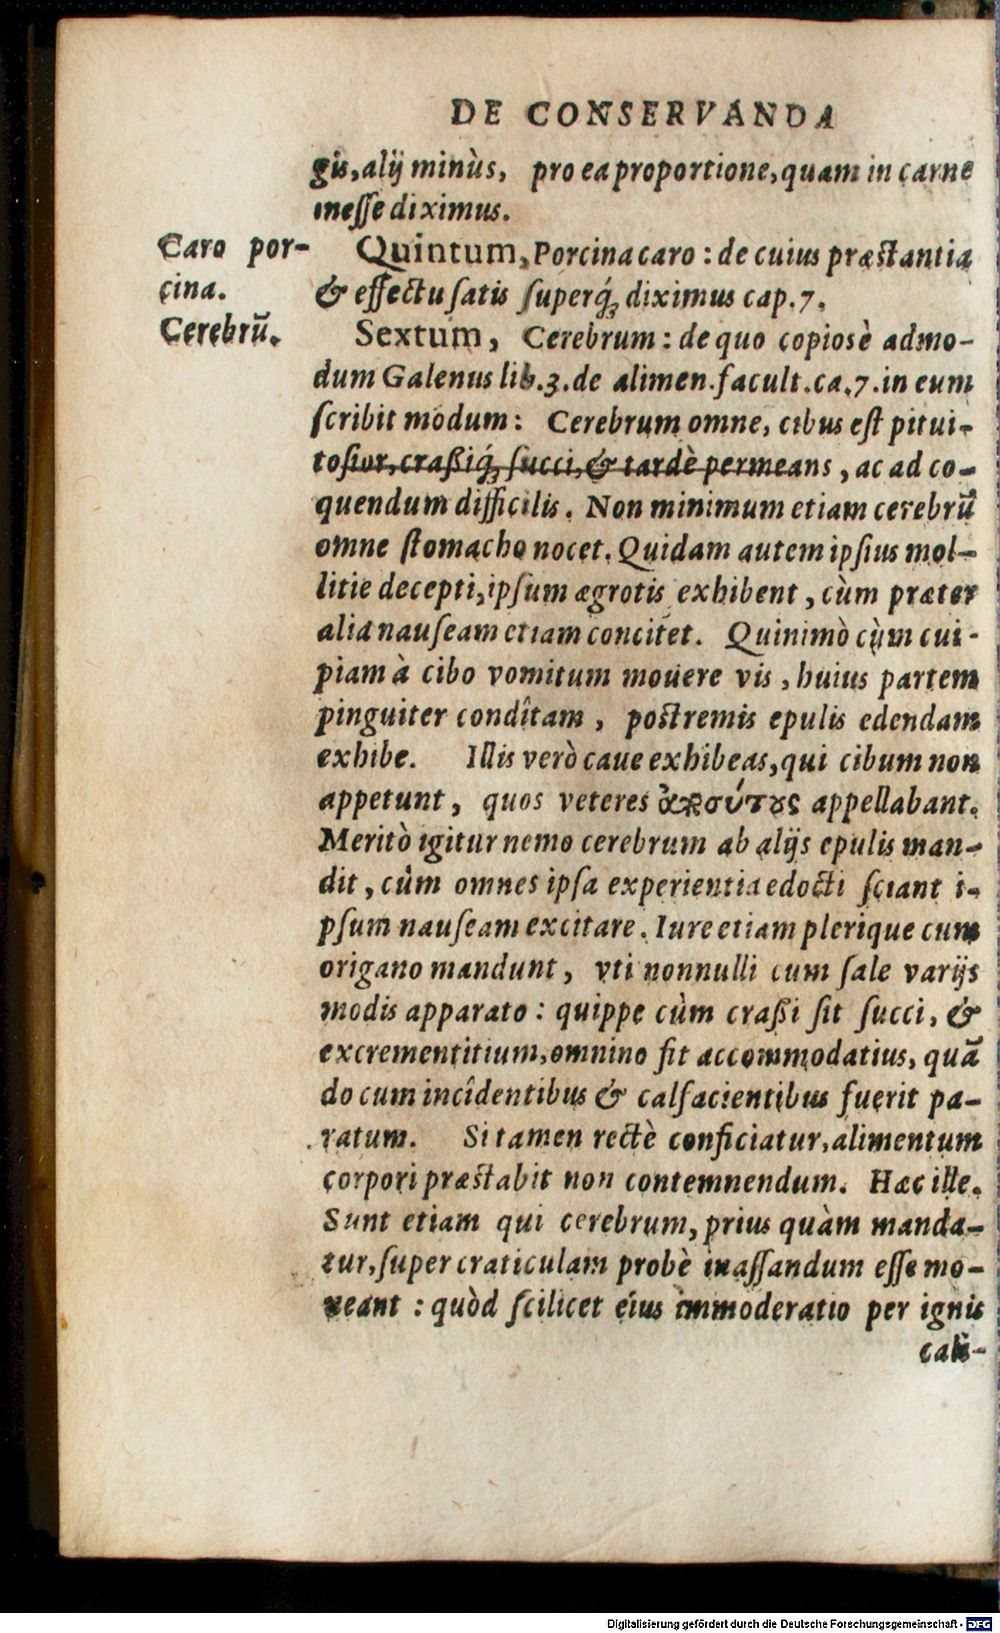 DE CONSERVANDA
gis, alij minùs, pro ea proportione, quam in carne
inesse diximus.
Caro por-
cina.
Quintum, Porcina caro : de cuius præstantia
& effectu satis superq́; diximus cap. 7.
Cerebrū.
Sextum, Cerebrum : de quo copiosè admo-
dum Galenus lib. 3. de alimen. facult. ca. 7. in eum
scribit modum : Cerebrum omne, cibus est pitui-
tosior, craßiq́; succi, & tardè permeans, ac ad co-
quendum difficilis. Non minimum etiam cerebrū
omne stomacho nocet. Quidam autem ipsius mol-
litie decepti, ipsum ægrotis exhibent, cùm præter
alia nauseam etiam concitet. Quinimò cùm cui-
piam à cibo vomitum mouere vis, huius partem
pinguiter condîtam, postremis epulis edendam
exhibe. Illis verò caue exhibeas, qui cibum non
appetunt, quos veteres appellabant.
Meritò igitur nemo cerebrum ab alijs epulis man-
dit, cùm omnes ipsa experientia edocti sciant i-
psum nauseam excitare. Iure etiam plerique cum
origano mandunt, vti nonnulli cum sale varijs
modis apparato : quippe cùm craßi sit succi, &
excrementitium, omnino fit accommodatius, quā
do cum incîdentibus & calfacientibus fuerit pa-
ratum. Si tamen rectè conficiatur, alimentum
corpori præstabit non contemnendum. Hæc ille.
Sunt etiam qui cerebrum, prius quàm manda-
tur, super craticulam probè inassandum esse mo-
neant : quòd scilicet eius immoderatio per ignis
cali-
Digitalisierung gefördert durch die Deutsche Forschungsgemeinschaft - DFG